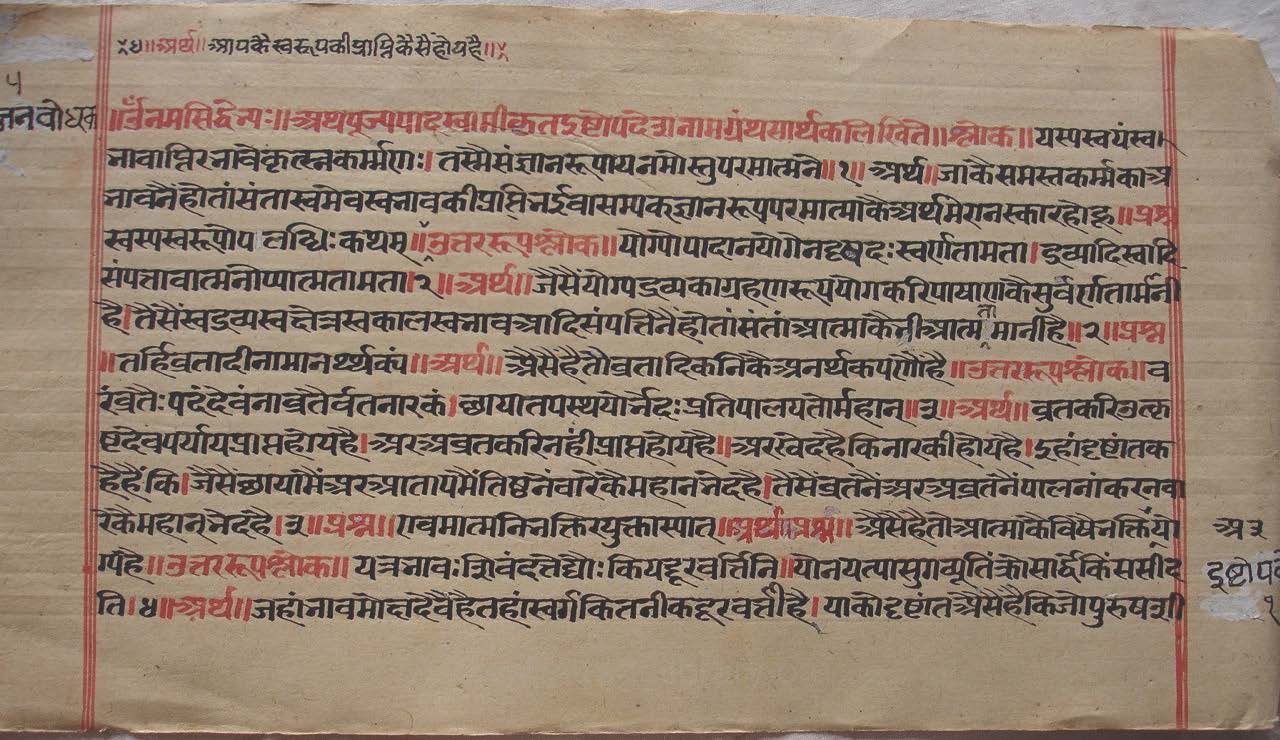 ४॥अर्थ॥आपकै स्वरूपकी प्राप्ति कैसैं होय है॥
५
जनबोधक
॥ॐ नमः सिद्धेभ्यः॥अथ पूज्यपादस्वामीकृत इष्टोपदेशनामग्रंथसार्थक लिखिते॥श्लोक॥यस्य स्वयं स्वा
भावाप्तिरभावे कृत्स्नकर्म्मणः।तस्मै संज्ञानरूपाय नमोस्तु परमात्मने॥१॥अर्थ॥जाकै समस्त कर्म्म का अ
भावनैं होतां संता स्वमेव स्वभाव की प्राप्ति भई वा सम्यक्ज्ञानरूप परमात्मा कै अर्थ मेरा नमस्कार होहू॥प्रश्न
स्वस्य स्वरूपोपलब्धिः कथम्॥उत्तररूपश्लोक॥योग्योपादानयोगेन दृषदः स्वर्णता मता।द्रव्यादिस्वादि
संपत्तावात्मनोप्यात्मता मता।२॥अर्थ॥जैसैं योग्य द्रव्य का ग्रहणरूप योग करि पाषाण कै सुवर्णता मानी
है।तैसैं स्वद्रव्य स्वक्षेत्र स्वकाल स्वभाव आदि संपत्तिनैं होतां संतां आत्मा कै भी आत्मता मानी है॥२॥प्रश्न
॥तर्हि व्रतादीनामानर्थक्यं॥अर्थ॥औसै है तौ व्रतादिकनि कै अनर्थकपणौं है॥उत्तररूपश्लोक॥व
रं व्रतैः पदं दैवं नाव्रतैर्वत नारकं।छायातपस्थयोर्भेदः प्रतिपालयतोर्महान्॥३॥अर्थ॥व्रत करि उत्कृ
ष्ट देवपर्याय प्राप्त होय है।अर अव्रत करि नहीं प्राप्त होय है॥अर खेद है कि नारकी होय है।इहां दृष्टांत क
है हैं कि।जैसैं छाया मैं अर आताप मैं तिष्ठनैंवारे कै महान भेद है।तैसैं व्रतनैं अर अव्रतनैं पालनां करनवा
रे कै महान् भेद है।३॥प्रश्न॥एवमात्मनि भक्तिरयुक्ता स्यात्॥अर्थ॥औसै है तो आत्मा कै विषै भक्ति अयो
ग्य है॥उत्तररूपश्लोक॥यत्र भावः शिवं दत्ते द्यौः कियद्दूरवर्त्तिनि॥यो नयत्यासु गव्यूतिं क्रोसार्द्धे किं स सीद
ति।४॥अर्थ॥जहां भाव मोक्ष देवै है तहां स्वर्ग कितनीक दूरवर्त्ती है।याको दृष्टांत औसै है कि जो पुरुष शी
अ ३
इष्टोप
१